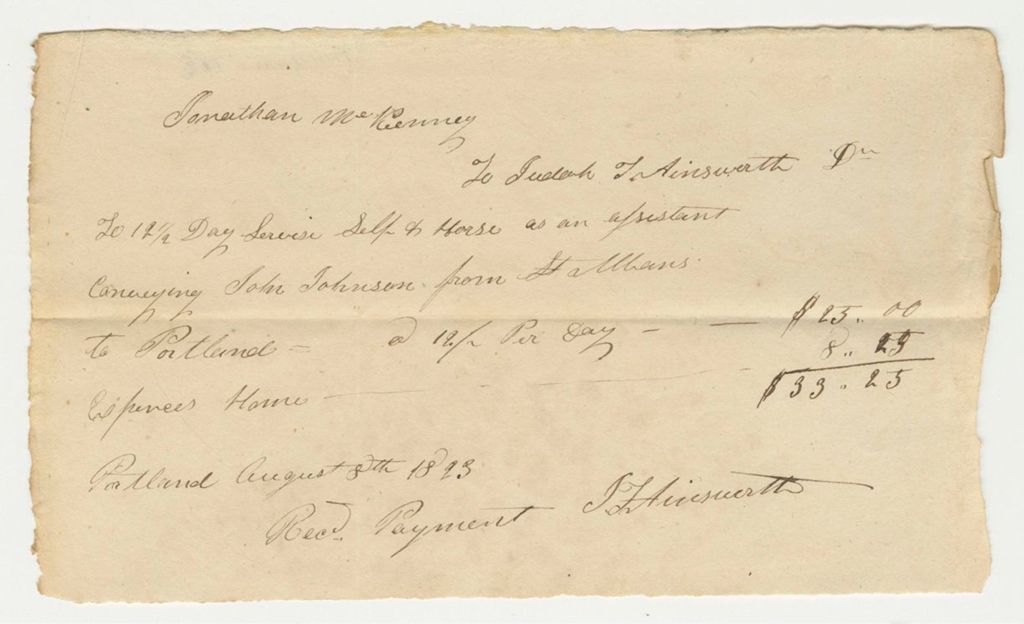 Jonathan McKenney
To Judah T. Ainsworth Dr
To 12½ Day Servise Self & Horse as an assistant
Conveying John Johnson from St Albans
to Portland = @ 12/ Per Day — — $ 25.. 00
Expences Home — — 8.. 25
$ 33.. 25
Portland August 8th 1823
Recd. Payment J T Ainsworth